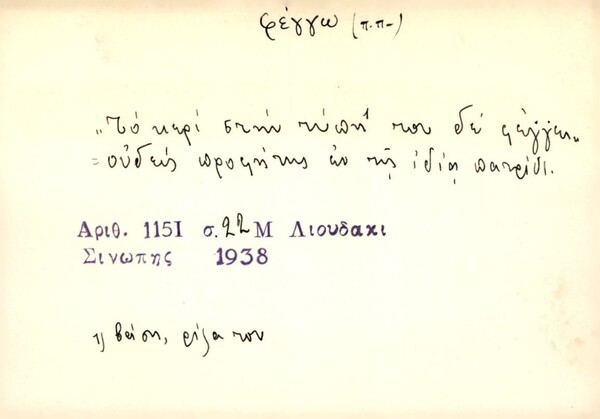 φέγγω (π.π-)
„Τό κερί στήν τύπη¹⁾ του δέ φέγγει„
= οὐδείς προφήτης ἐν τῇ ἰδίᾳ πατρίδι.
Αριθ. 1151 σ. 22 Μ Λιουδακι
Σινωπης 1938
1) βάση, ρίζα του